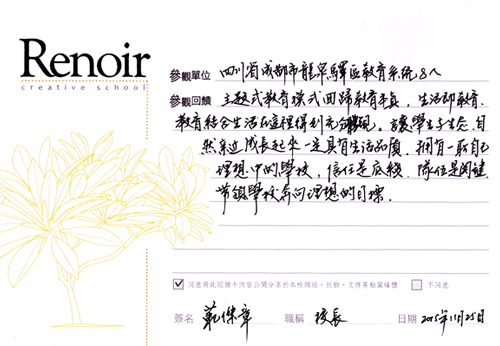 Renoir
creative school
參觀單位 四川省成都市龍泉驛區教育系統8人
參觀回饋 主題式教育模式回歸教育本真,生活即教育.
教育結合生活在這裡得到充分體現。讓學生于生态.自
然亲近成長起來一定具有生活品質.擁有一般自己
理想中的學校,信任是底綫.隊伍是関鍵
帶領學校奔向理想的目標.
同意將此回饋卡內容公開分享於本校網站、刊物、文件等相關媒體 不同意
簽名 職稱 校長 日期 2015年11月25日